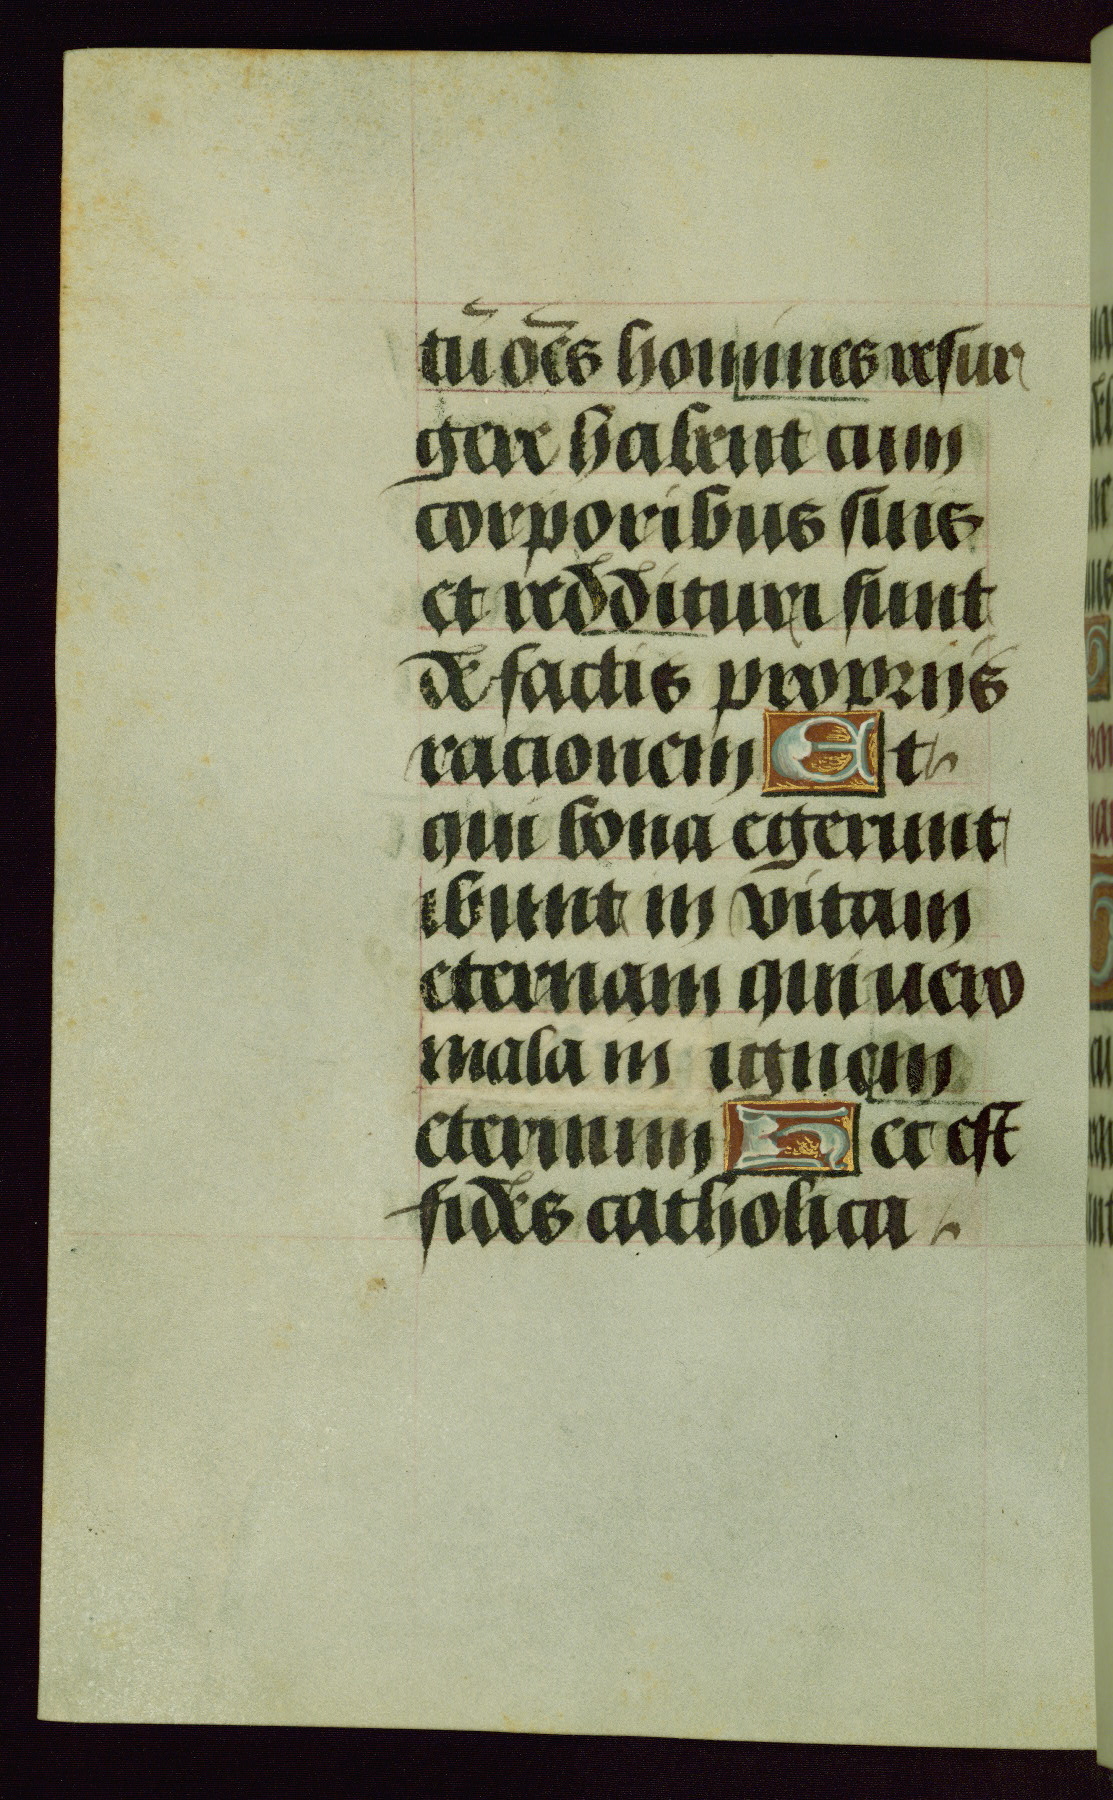 tū oēs homines resur
gere habent cum
corporibus suis
et reddituri sunt
de factis proprijs
racionem Et
qui bona egerunt
ibunt in vitam
eternam qui uero
mala in ignem
eternum Hec est
fides catholica